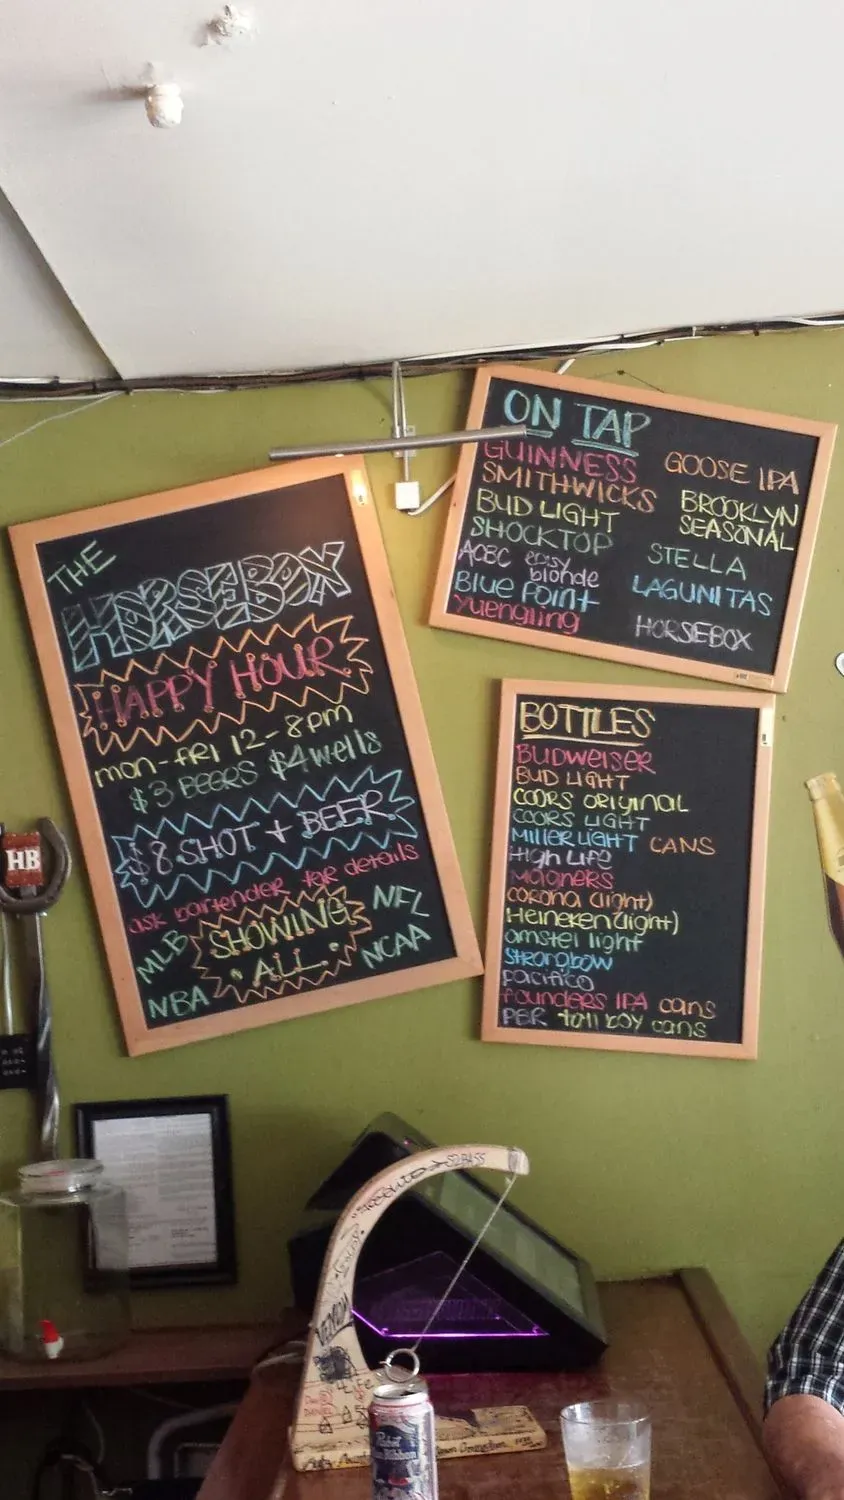 THE
HORSEBOX
HAPPY HOUR
mon-FRI 12-8pm
$3 BEERS $4 wells
$8 SHOT + BEER
ask bartender for details
MLB
SHOWING
ALL
NFL
NCAA
NBA
ON TAP
GUINNESS
SMITHWICKS
BUD LIGHT
SHOCKTOP
ACBC easy
blonde
Blue Point
Yuengling
GOOSE IPA
BROOKLYN
SEASONAL
STELLA
LAGUNITAS
HORSEBOX
BOTTLES
BUDWEISER
BUD LIGHT
COORS ORIGINAL
COORS LIGHT
MILLER LIGHT CANS
High Life
Magners
corona (light)
Heineken (light)
amstel light
strongbow
pacifico
founders IPA cans
PBR tall boy cans
HB
Pabst
Blue Ribbon